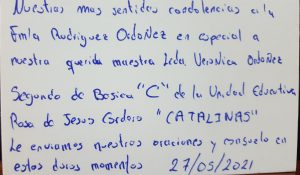 Nuestras mas sentidas condolencias a la
Fmla Rodriguez Ordoñez en especial a
nuestra querida maestra Lcda. Veronica Ordoñez
Segundo de Basica "C" de la Unidad Educativa
Rosa de Jesus Cordero "CATALINAS"
Le enviamos nuestras oraciones y consuelo en
estos duros momentos 27/05/2021